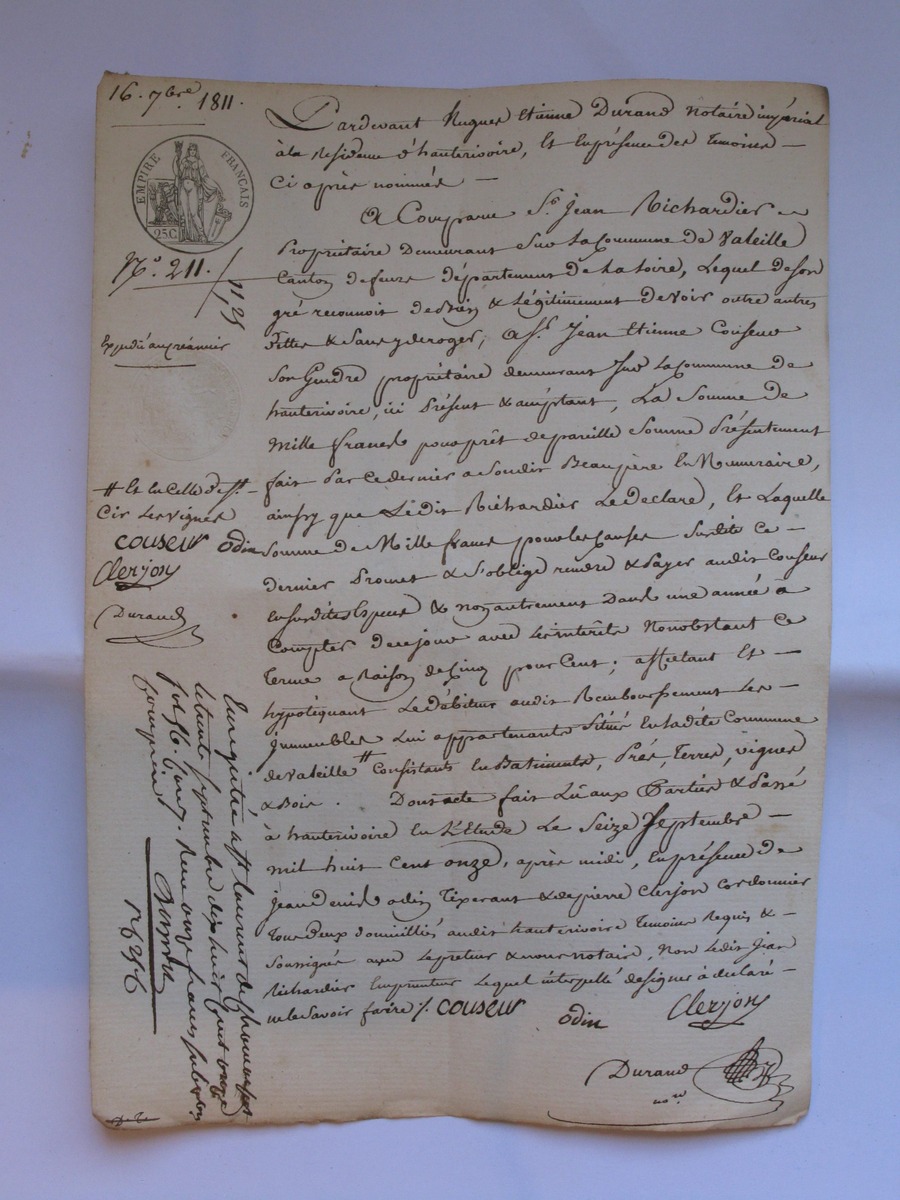 16. 7bre. 1811.
EMPIRE FRANÇAIS
25C
No. 211.
11.25
Expédié au créancier
Pardevant Hugues Etienne Durand Notaire impérial
à la Residence d'hauterivoire, Et En présence des temoins
Ci après nommés
A Comparu Sr. Jean Richardier
Propriétaire Demeurant Sur La Commune de Valeille
Canton de feurs département de La Loire, Lequel de Son
gré reconnoit de Bien & Légitimement devoir outre autres
Dettes & Sans y deroger, a Sr. Jean Etienne Couseur
Son Gendre propriétaire demeurant Sur La Commune de
hauterivoire, ici Présent & acceptant, La Somme de
Mille francs pour prêt de pareille Somme Présentement
fait Par ce dernier a Sondit Beaupère En Numeraire,
ainsy que Ledit Richardier Le declare, Et Laquelle
Somme de Mille francs pour les causes Susdite ce
dernier Promet & S'oblige rendre & Payer audit Couseur
En Susdites Especes & non autrement Dans une année à
Compter de ce jour avec Les interêts Nonobstant ce
terme a Raison de Cinq pour Cent; affectant Et
hypotéquant Le débiteur audit Remboursement Les
immeubles Lui appartenants Situés En Ladite Commune
de Valeille # Consistants En Batiments, Prés, Terres, vignes
& Bois. Dont acte fait Lû aux Parties & Passé
à hauterivoire En L'Etude Le Seize Septembre
mil huit Cent onze, après midi, En présence de
Jean denis odin Tixerant & de pierre Clerjon Cordonnier
Tous Deux domiciliés audit hauterivoire Temoins Requis &
Soussignés avec Le preteur & nous notaire, Non Ledit Jean
Richardier Emprunteur Lequel interpellé de signer à déclaré
ne le Savoir faire /. couseur
odin
Clerjon
Durand
nore
# Et En Celle de St.
Cir Les vignes
couseur odin
Clerjon
Durand
Enregistré à St Laurent de Chamousset
le trente Septembre dix huit cent onze
fol. 56. Case 7. Reçu onze francs
compris